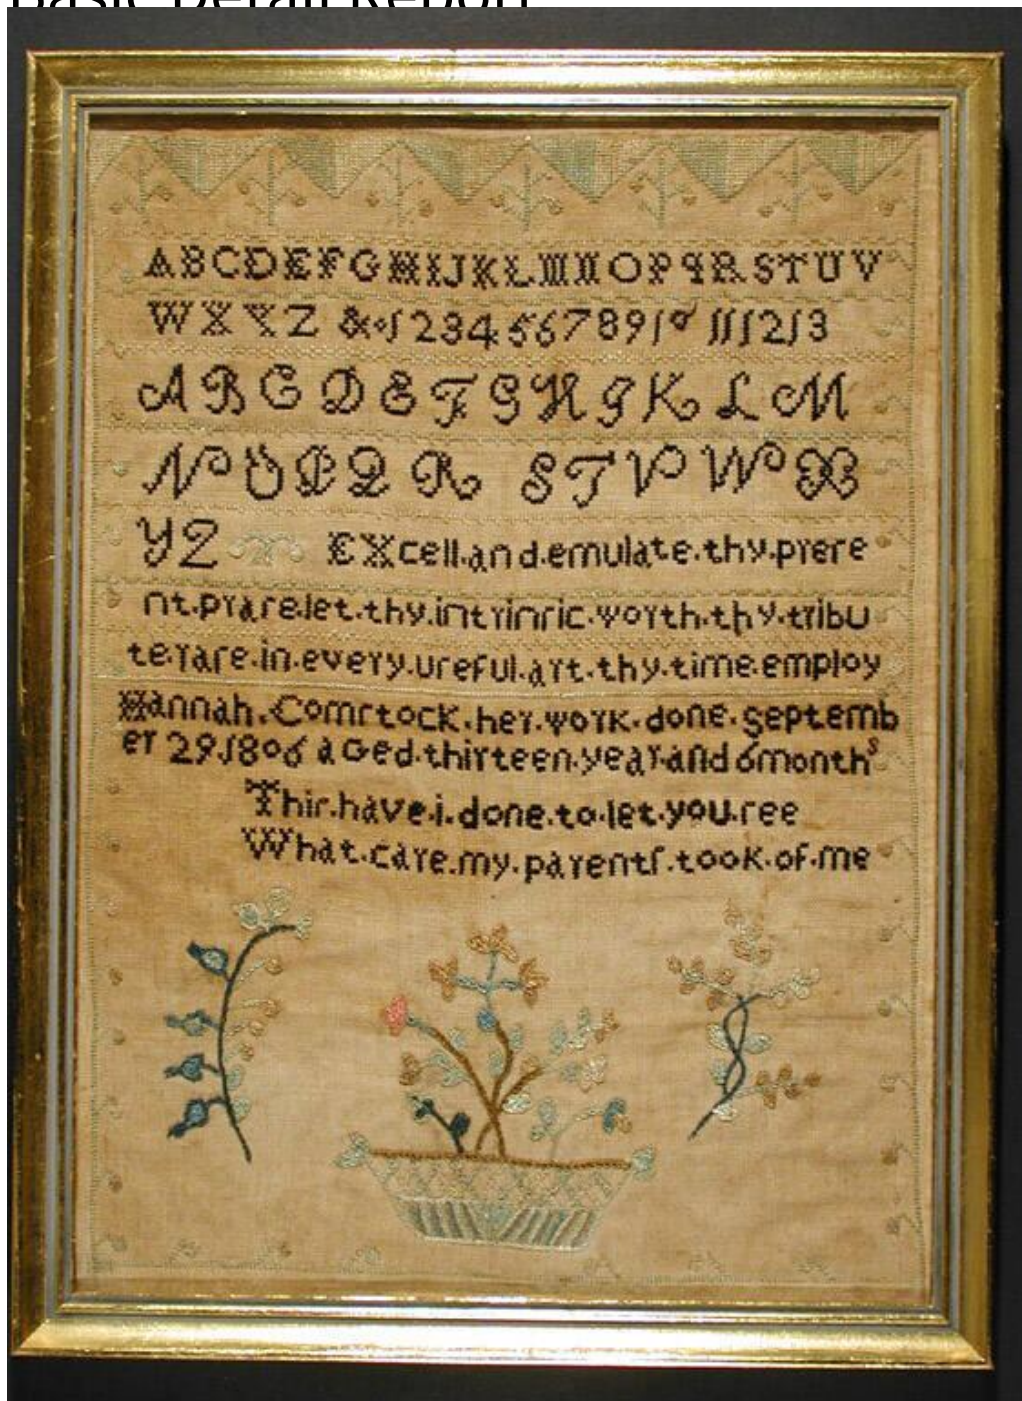 Basic Detail Report
ABCDEFGHIJKLMNOPQRSTUV
WXYZ &·1 2 3 4 5 6 7 8 9 10 11 12 13
A B C D E F G H J K L M
N O P Q R S T V W X
Y Z EXcell.and.emulate.thy.preſe
nt.praſe.let.thy.intrinſic.worth.thy.tribu
te.raſe.in.every.uſeful.art.thy.time.employ
Hannah.Comſtock.her.work.done.septemb
er 29.1806 aGed.thirteen.year.and 6month s
Thiſ.have.i.done.to.let.you.ſee
What.care.my.parentſ.took.of.me